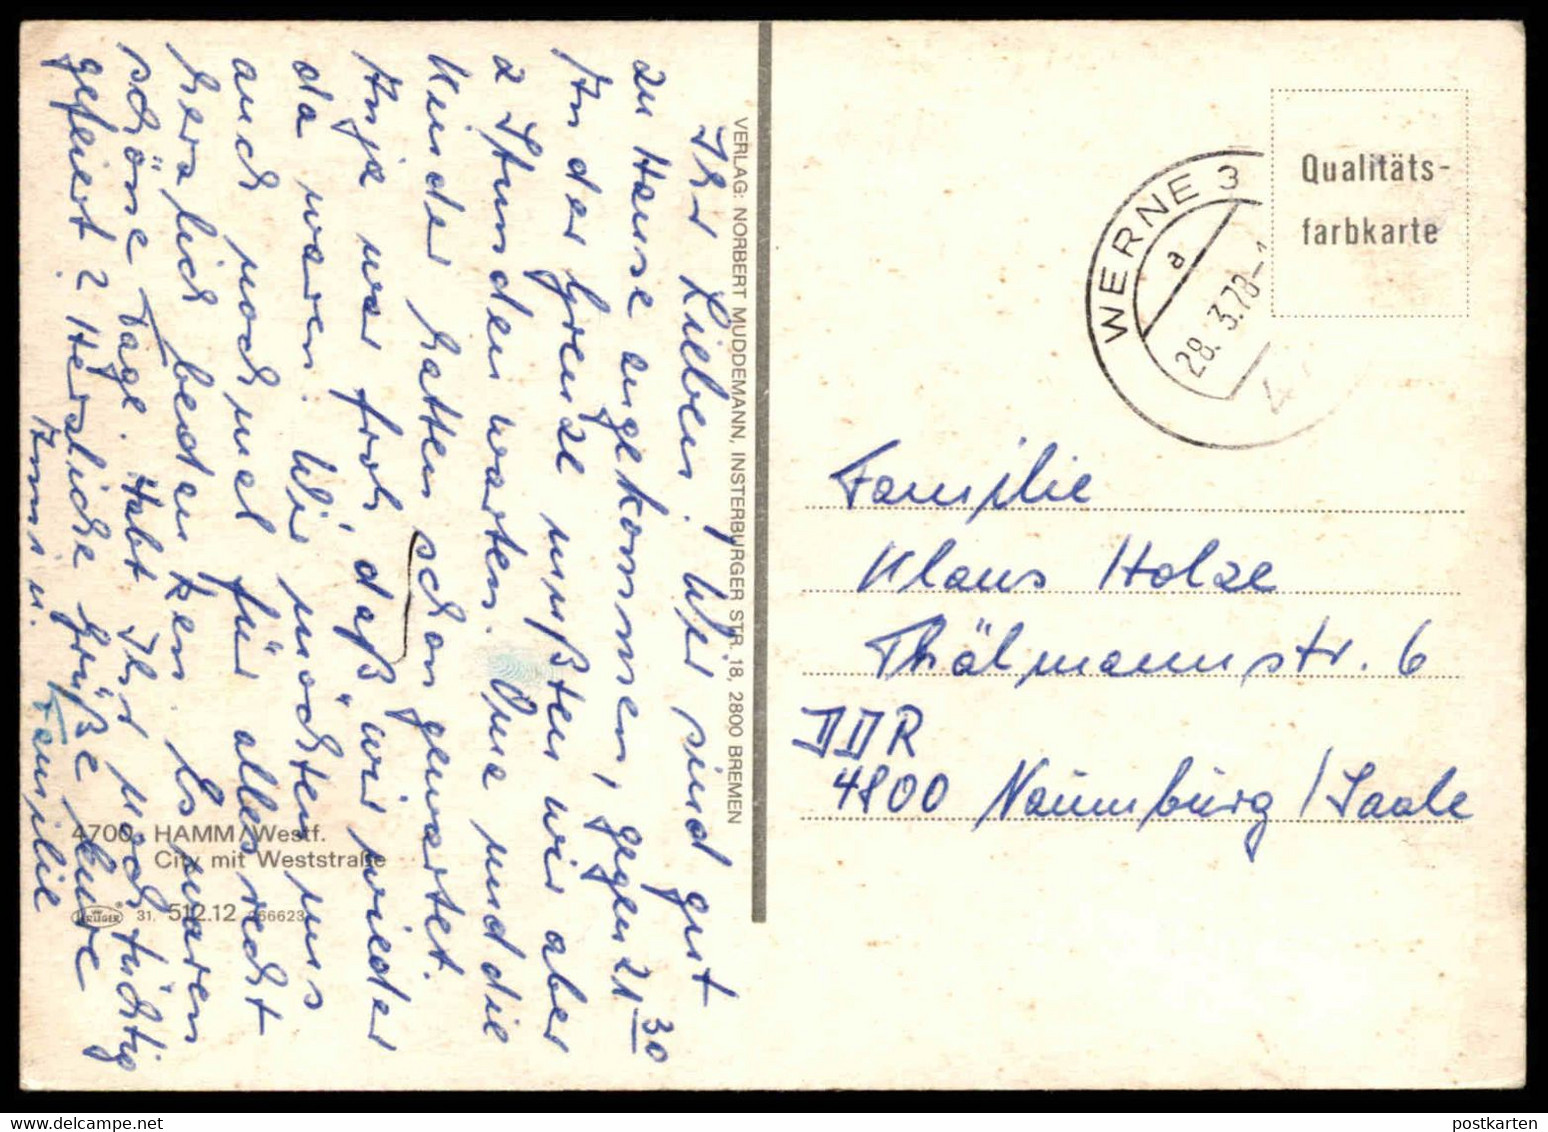 Ihr Lieben! Wir sind gut
zu Hause angekommen, gegen 21 30
An der Grenze mußten wir aber
2 Stunden warten. Oma und die
Kinder hatten schon gewartet.
Anja war froh, daß wir wieder
da waren. Wir möchten uns
auch noch mal für alles recht
herzlich bedanken. Es waren
schöne Tage. Habt Ihr noch tüchtig
gefeiert? Herzliche Grüße Eure
Anni u. Familie
VERLAG: NORBERT MUDDEMANN, INSTERBURGER STR. 18, 2800 BREMEN
4700 HAMM/Westf.
City mit Weststraße
KRÜGER ® 31. 512.12 266623
WERNE 3
a
28. 3.78-1
4
Qualitäts-
farbkarte
Familie
Klaus Holze
Thälmannstr. 6
DDR
4800 Naumburg/Saale
postkarten